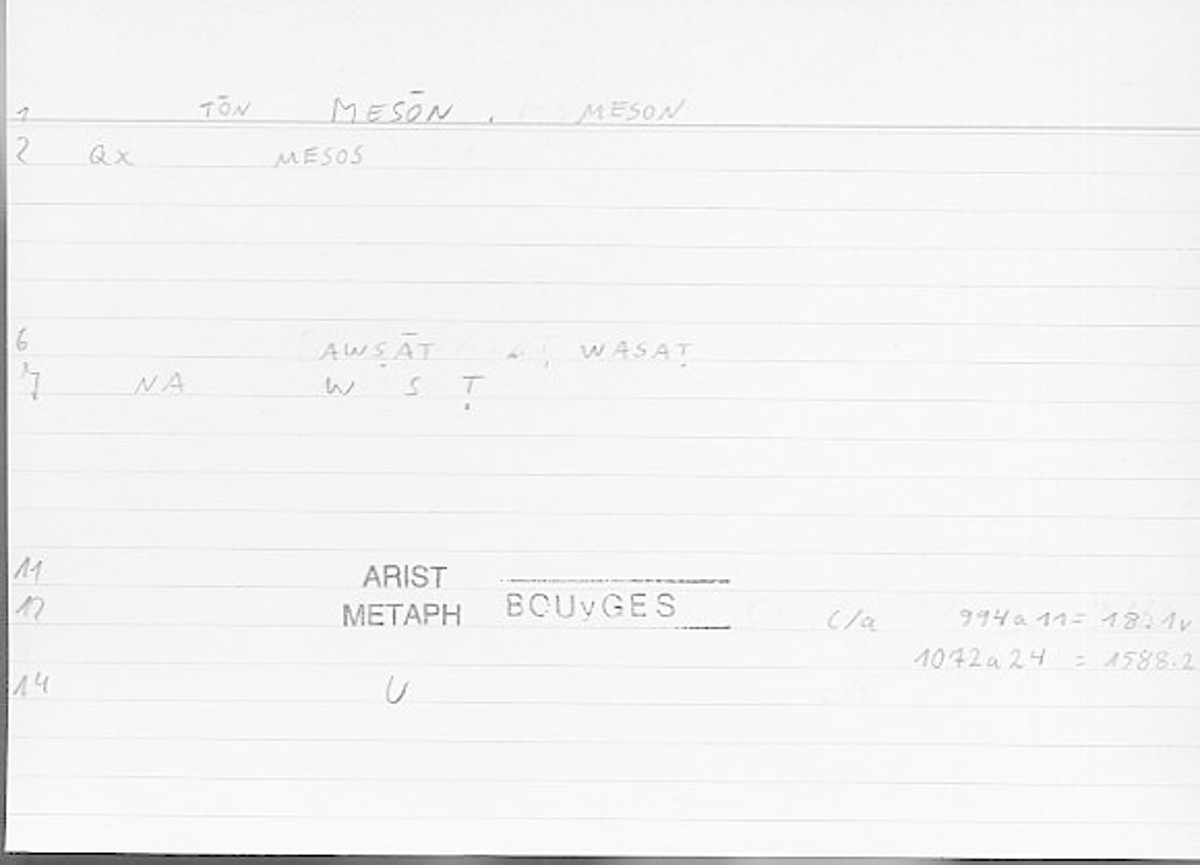 1 TŌN MESŌN . MESON
2 Qx MESOS
6 AWṢĀT , WASAṬ
7 NA W S Ṭ
11 ARIST
12 METAPH BOUyGES c/a 994a11 =
1072a24 = 1588.2
14 U